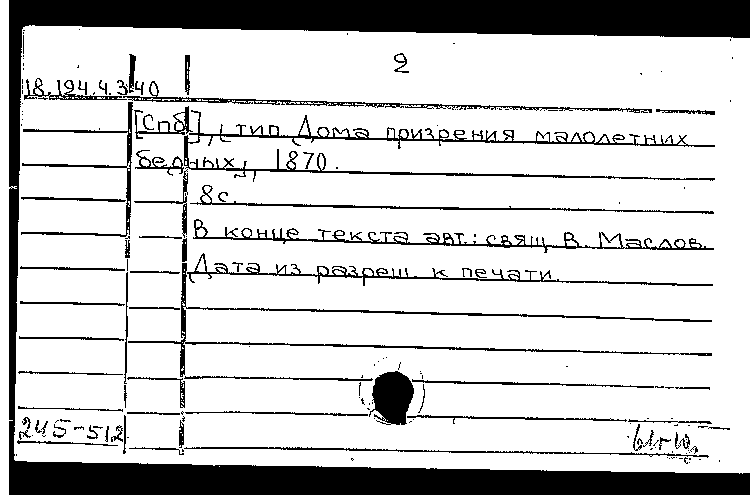 2
18.194.4.340
[Спб], [тип. Дома призрения малолетних
бедных], 1870.
8с.
В конце текста авт.: свящ. В. Маслов.
Дата из разреш. к печати.
245-512